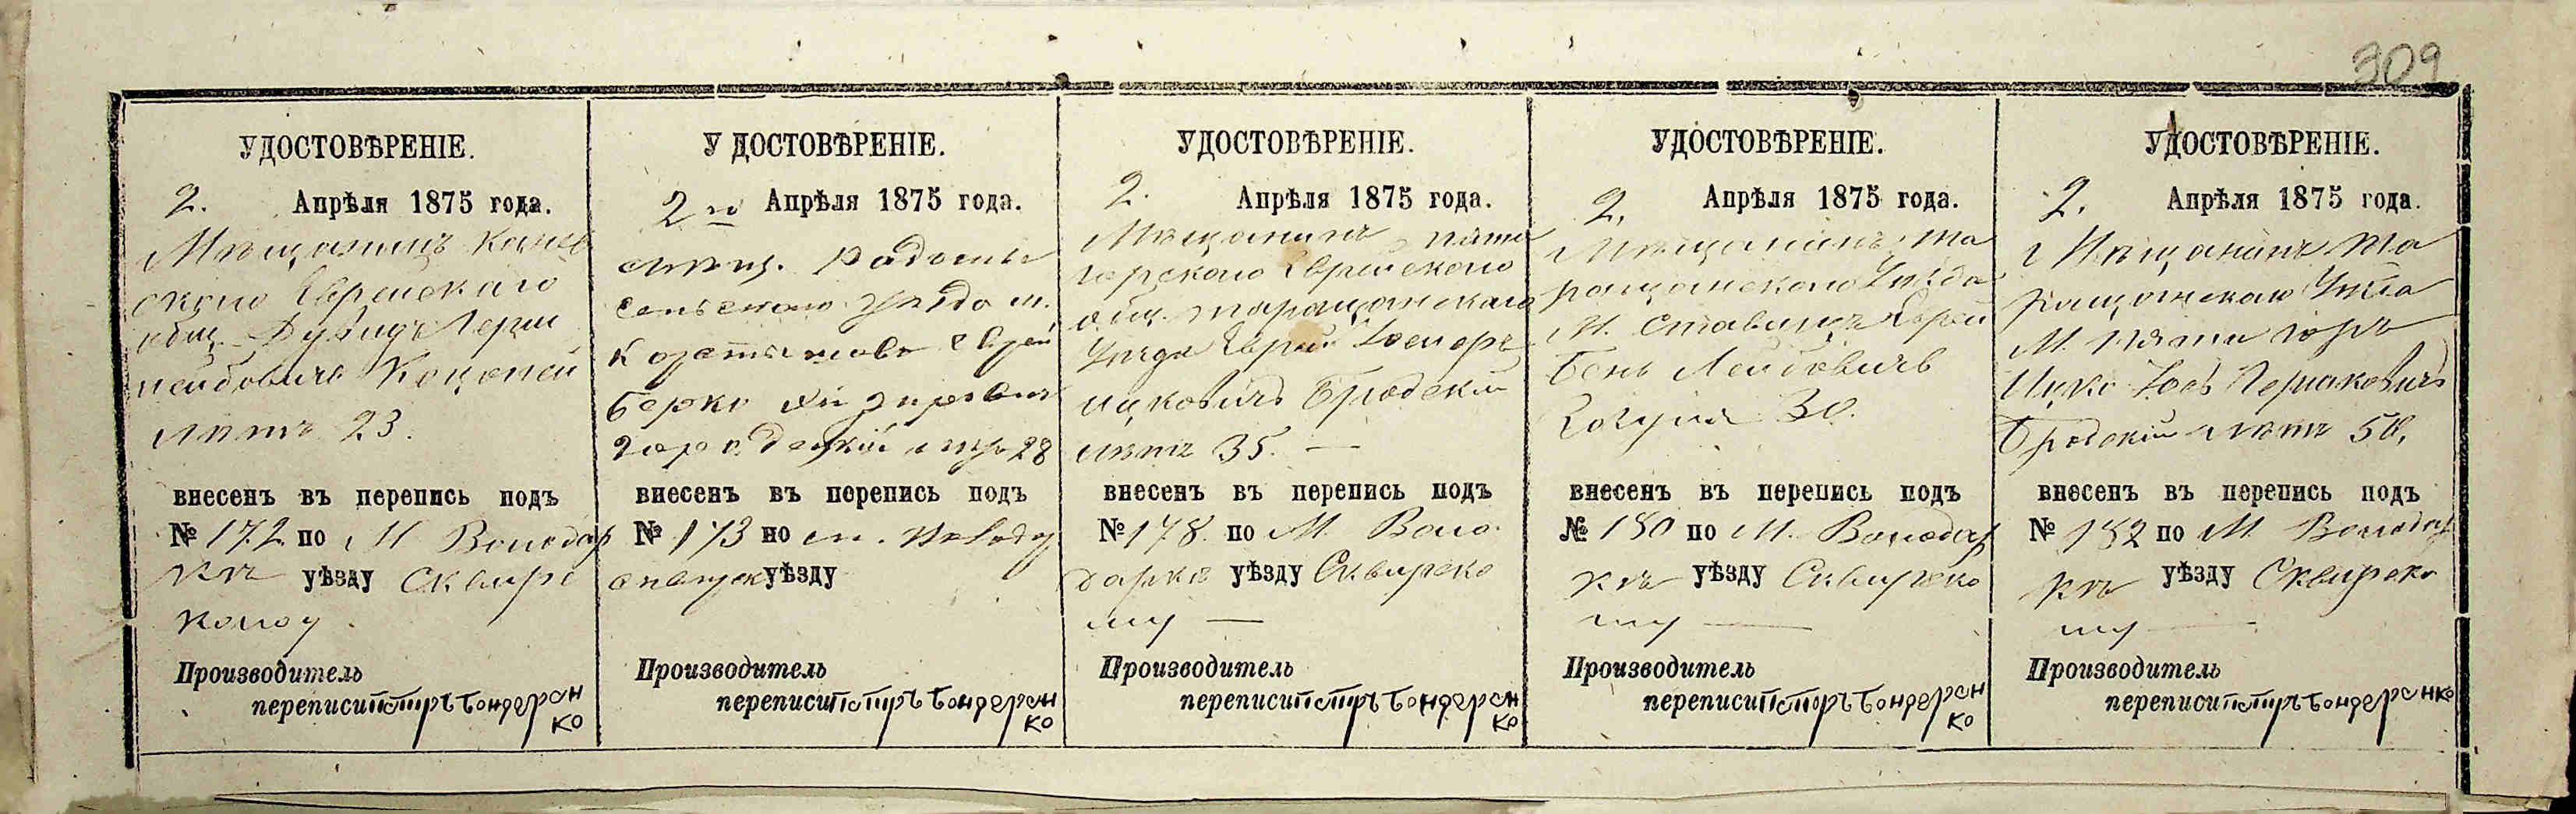 309
УДОСТОВѢРЕНІЕ.
2. Апрѣля 1875 года.
Мѣщанинъ Канев
скаго Еврейскаго
общ. Дувидъ Герш
лейбовичъ
лѣтъ 23.
внесенъ въ перепись подъ
№ 172 по М Володар
кѣ уѣзду Сквирс
кому
Производитель
переписи Петръ Бондарен
ко
У ДОСТОВѢРЕНІЕ.
2го Апрѣля 1875 года.
мѣщ. Радомы
сельскаго уѣзда м.
Коростышова Еврей
Берко
Городецкій лѣтъ 28
внесенъ въ перепись подъ
№ 173 по м. Володар
сквирск уѣзду
Производитель
переписи Петръ Бондарен
ко
УДОСТОВѢРЕНІЕ.
2. Апрѣля 1875 года.
Мѣщанинъ пяти
горскаго Еврейскаго
общ. таращанскаго
Уѣзда Еврей
ицковичъ Бродскій
лѣтъ 35. —
внесенъ въ перепись подъ
№ 178. по М. Воло
дарке уѣзду Сквирско
му —
Производитель
переписи Петръ Бондарен
ко
УДОСТОВѢРЕНІЕ.
2. Апрѣля 1875 года.
Мѣщанинъ Та
ращанскаго Уѣзда
М. Ставищъ Еврей
Бень Лейбовичъ
30.
внесенъ въ перепись подъ
№ 180 по М. Володар
кѣ уѣзду Сквирско
му —
Производитель
переписи Петръ Бондарен
ко
УДОСТОВѢРЕНІЕ.
2. Апрѣля 1875 года.
Мѣщанинъ Та
ращанскаго Уѣзда
М. Пяти горъ
Ицко Іосъ Гершковичъ
Бродскій лѣтъ 50,
внесенъ въ перепись подъ
№ 182 по М. Володар
кѣ уѣзду Сквирско
му —
Производитель
переписи Петръ Бондаренко